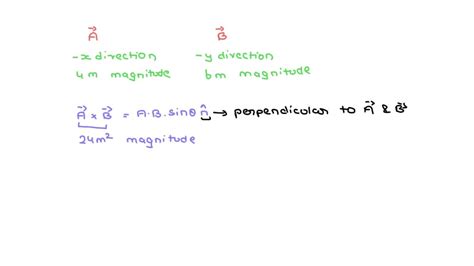 A⃗ B⃗
-x direction -y direction
4 m magnitude 6m magnitude
A⃗ × B⃗ = A·B·sinθ n̂ → perpendicular to A⃗ & B⃗
24m² magnitude